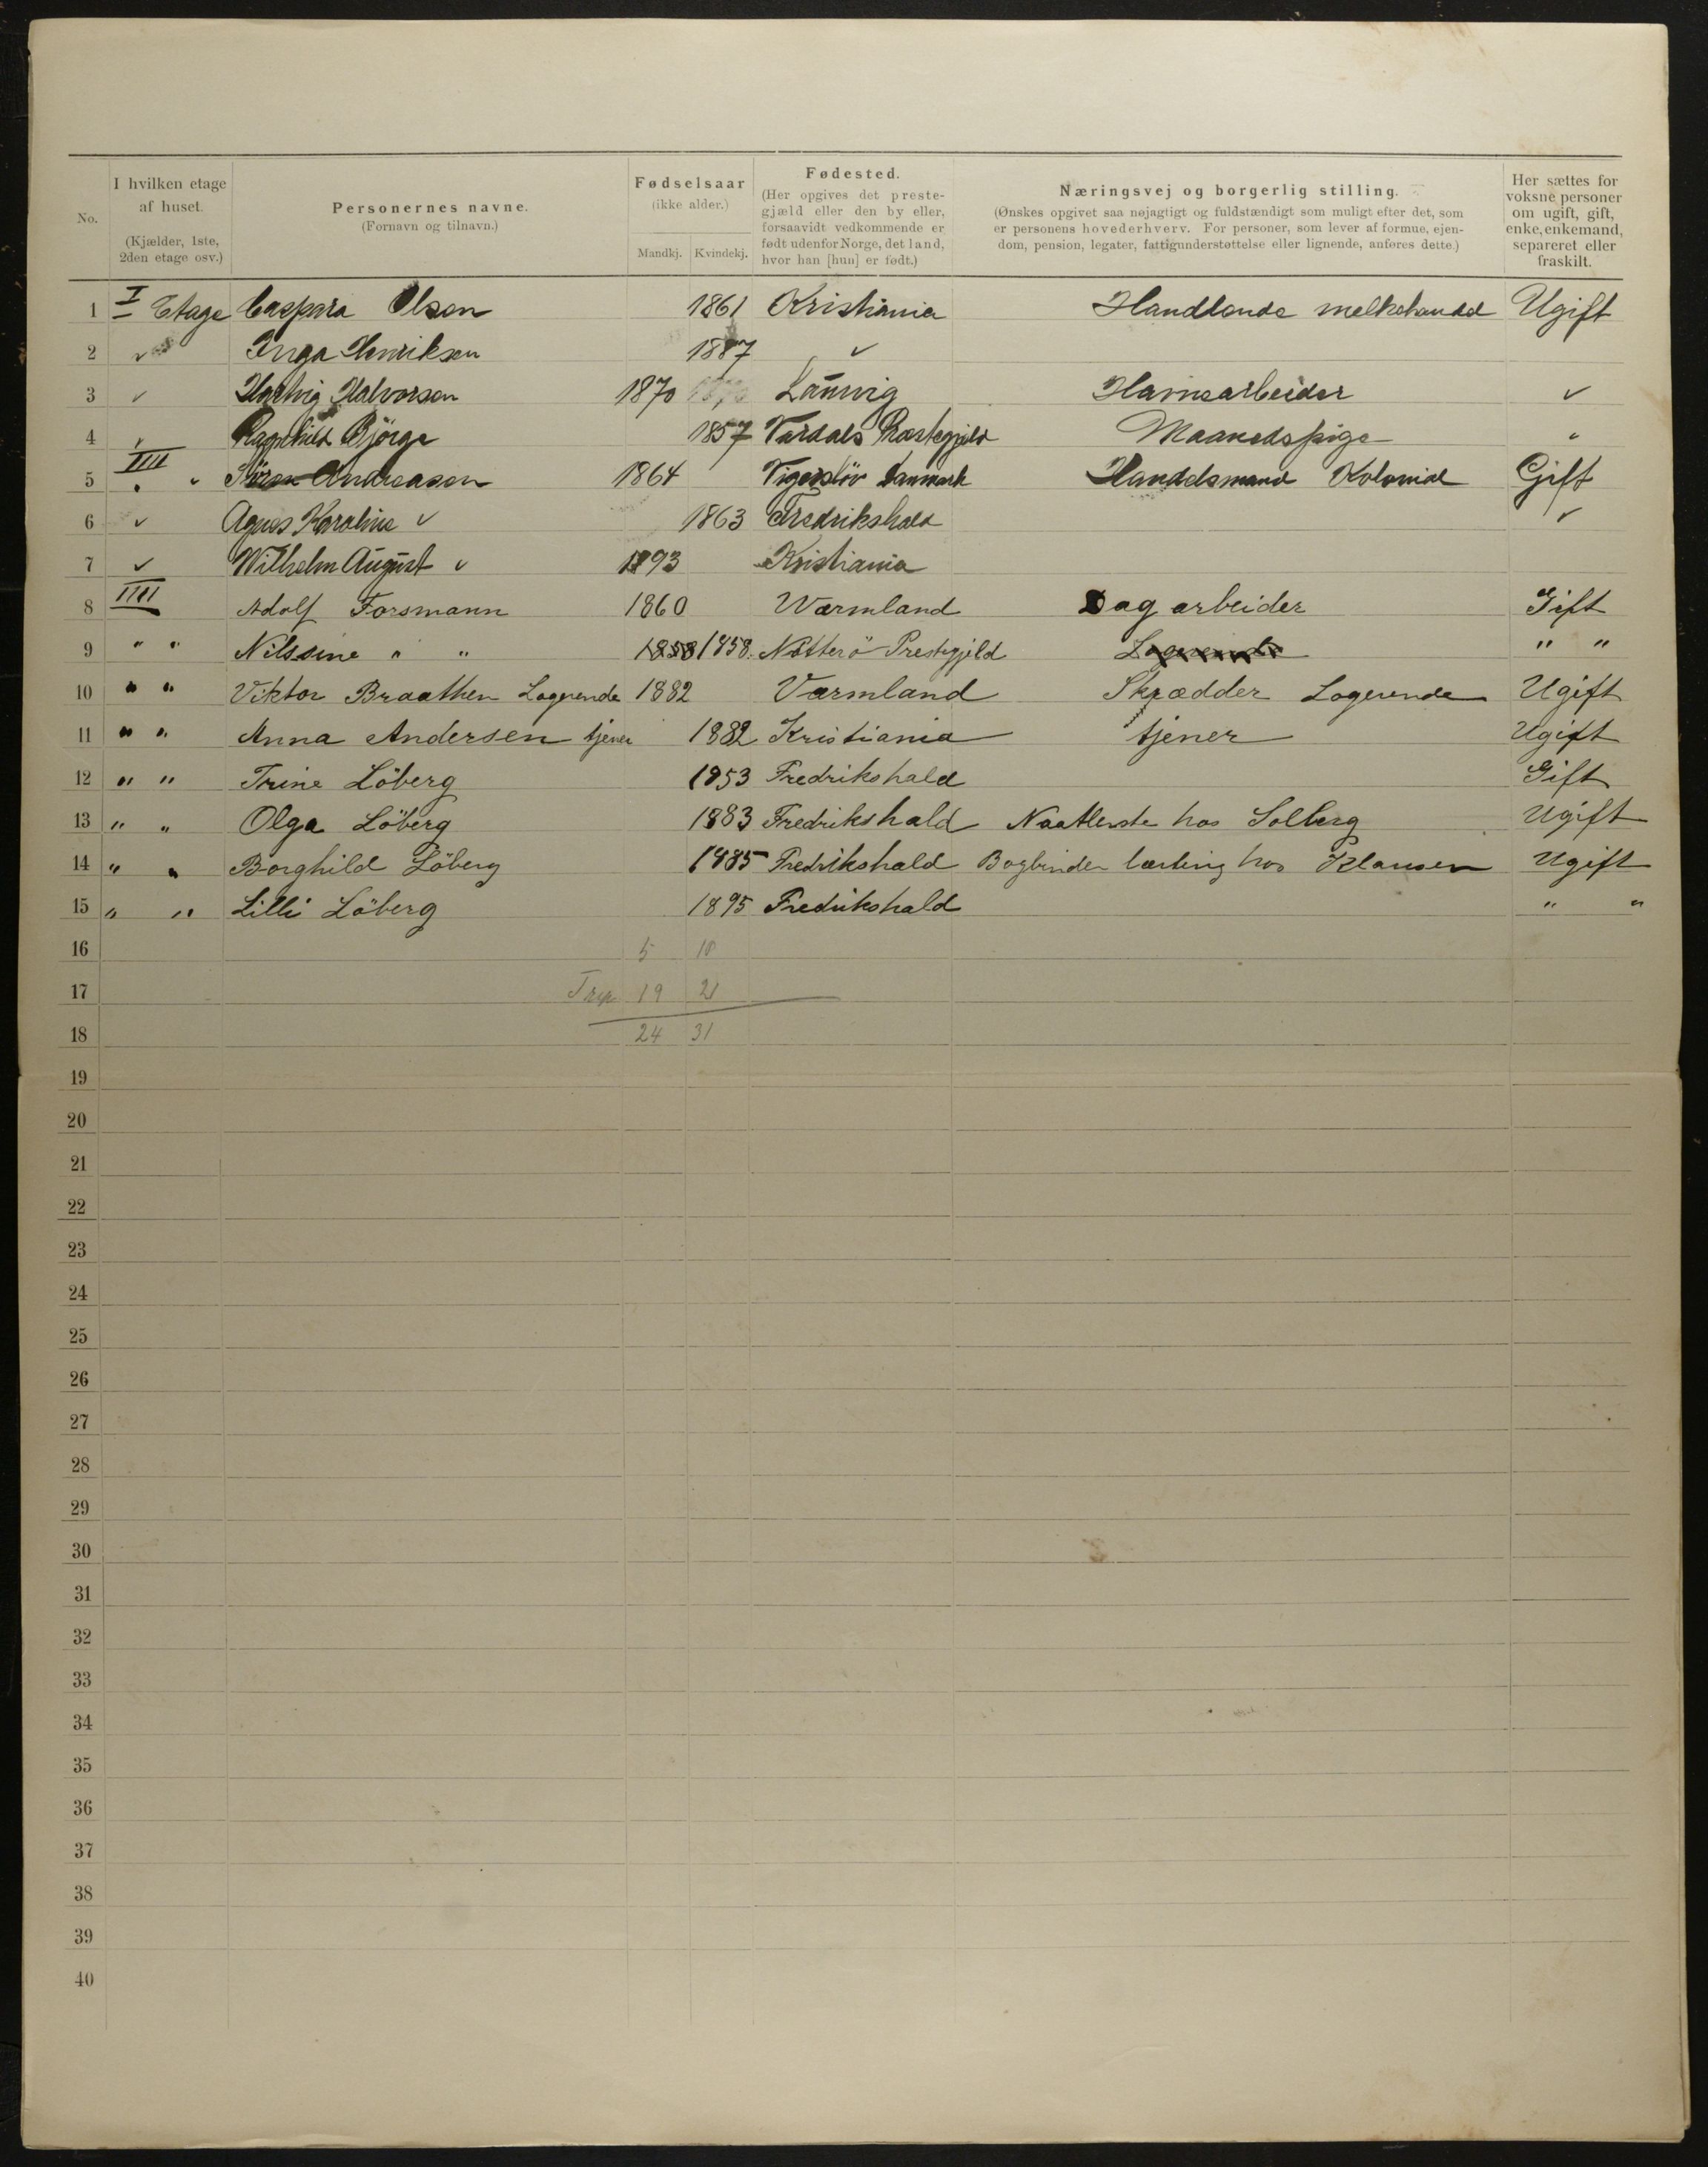 No. I hvilken etage af huset. (Kjælder, 1ste, 2den etage osv.) Personernes navne. (Fornavn og tilnavn.) Fødselsaar (ikke alder.) Mandkj. Kvindekj. Fødested. (Her opgives det prestegjæld eller den by eller, forsaavidt vedkommende er født udenfor Norge, det land, hvor han [hun] er født.) Næringsvej og borgerlig stilling. (Ønskes opgivet saa nøjagtigt og fuldstændigt som muligt efter det, som er personens hovederhverv. For personer, som lever af formue, ejendom, pension, legater, fattigunderstøttelse eller lignende, anføres dette.) Her sættes for voksne personer om ugift, gift, enke, enkemand, separeret eller fraskilt.
1 I Etage Caspara Olsen 1861 Kristiania Handlende melkehandel Ugift
2 " Inga Henriksen 1887 "
3 " Hartvig Halvorsen 1870 Laurvig Havnearbeider "
4 " Ragnhild Bjórge 1857 Vardals Præstegjeld Maanedspige "
5 IIII " " Sören Andreasen 1864 Danmark Handelsmand Kolonial Gift
6 " Agnes Karoline " 1863 Fredrikshald "
7 " Wilhelm August " 1893 Kristiania
8 IIII Adolf Forsmann 1860 Wærmland Dag arbeider Gift
9 " " Nilssine " " 1858 1858. Nötterö Prestegjeld Logerende " "
10 " " Viktor Braathen Logerende 1882 Værmland Skrædder Logerende Ugift
11 " " Anna Andersen tjener 1882 Kristiania tjener Ugift
12 " " Trine Löberg 1853 Fredrikshald Gift
13 " " Olga Löberg 1883 Fredrikshald Naatlerske hos Solberg Ugift
14 " " Borghild Löberg 1885 Fredrikshald Bogbinder lærling hos Klausen Ugift
15 " " Lilli Löberg 1895 Fredrikshald " "
16 5 10
17 Trsp. 19 21
18 24 31
19
20
21
22
23
24
25
26
27
28
29
30
31
32
33
34
35
36
37
38
39
40